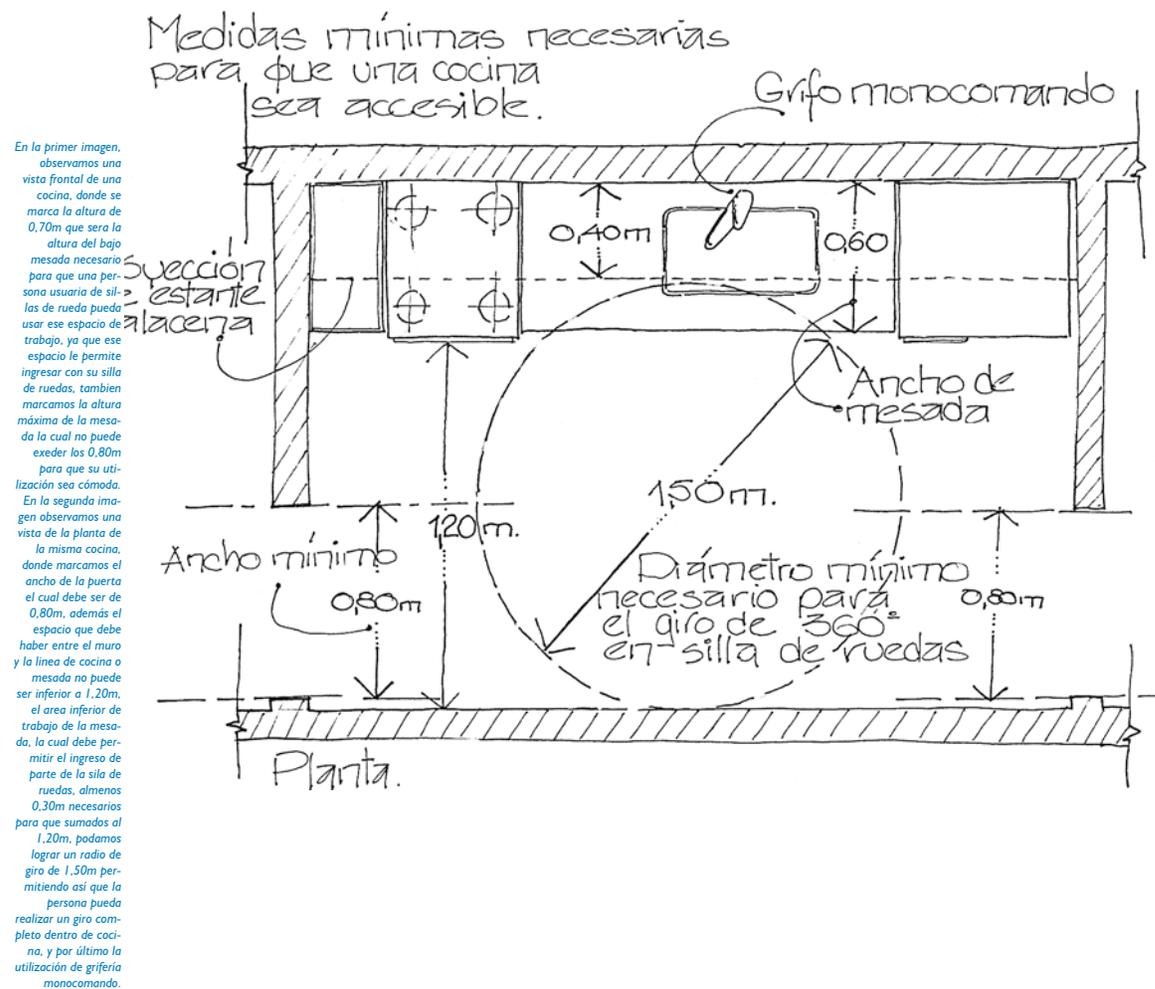 Medidas mínimas necesarias
para que una cocina
sea accesible.
Grifo monocomando
En la primer imagen,
observamos una
vista frontal de una
cocina, donde se
marca la altura de
0,70m que sera la
altura del bajo
mesada necesario
para que una per-
sona usuaria de sil-
las de rueda pueda
usar ese espacio de
trabajo, ya que ese
espacio le permite
ingresar con su silla
de ruedas, tambien
marcamos la altura
máxima de la mesa-
da la cual no puede
exeder los 0,80m
para que su uti-
lización sea cómoda.
En la segunda ima-
gen observamos una
vista de la planta de
la misma cocina,
donde marcamos el
ancho de la puerta
el cual debe ser de
0,80m, además el
espacio que debe
haber entre el muro
y la linea de cocina o
mesada no puede
ser inferior a 1,20m,
el area inferior de
trabajo de la mesa-
da, la cual debe per-
mitir el ingreso de
parte de la sila de
ruedas, almenos
0,30m necesarios
para que sumados al
1,20m, podamos
lograr un radio de
giro de 1,50m per-
mitiendo así que la
persona pueda
realizar un giro com-
pleto dentro de coci-
na, y por último la
utilización de grifería
monocomando.
0,40m
0,60
estante
alacena
Ancho de
mesada
1,50m.
1,20m.
Ancho mínimo
0,80m
Diámetro mínimo
necesario para
el giro de 360°
en silla de ruedas
0,80m
Planta.